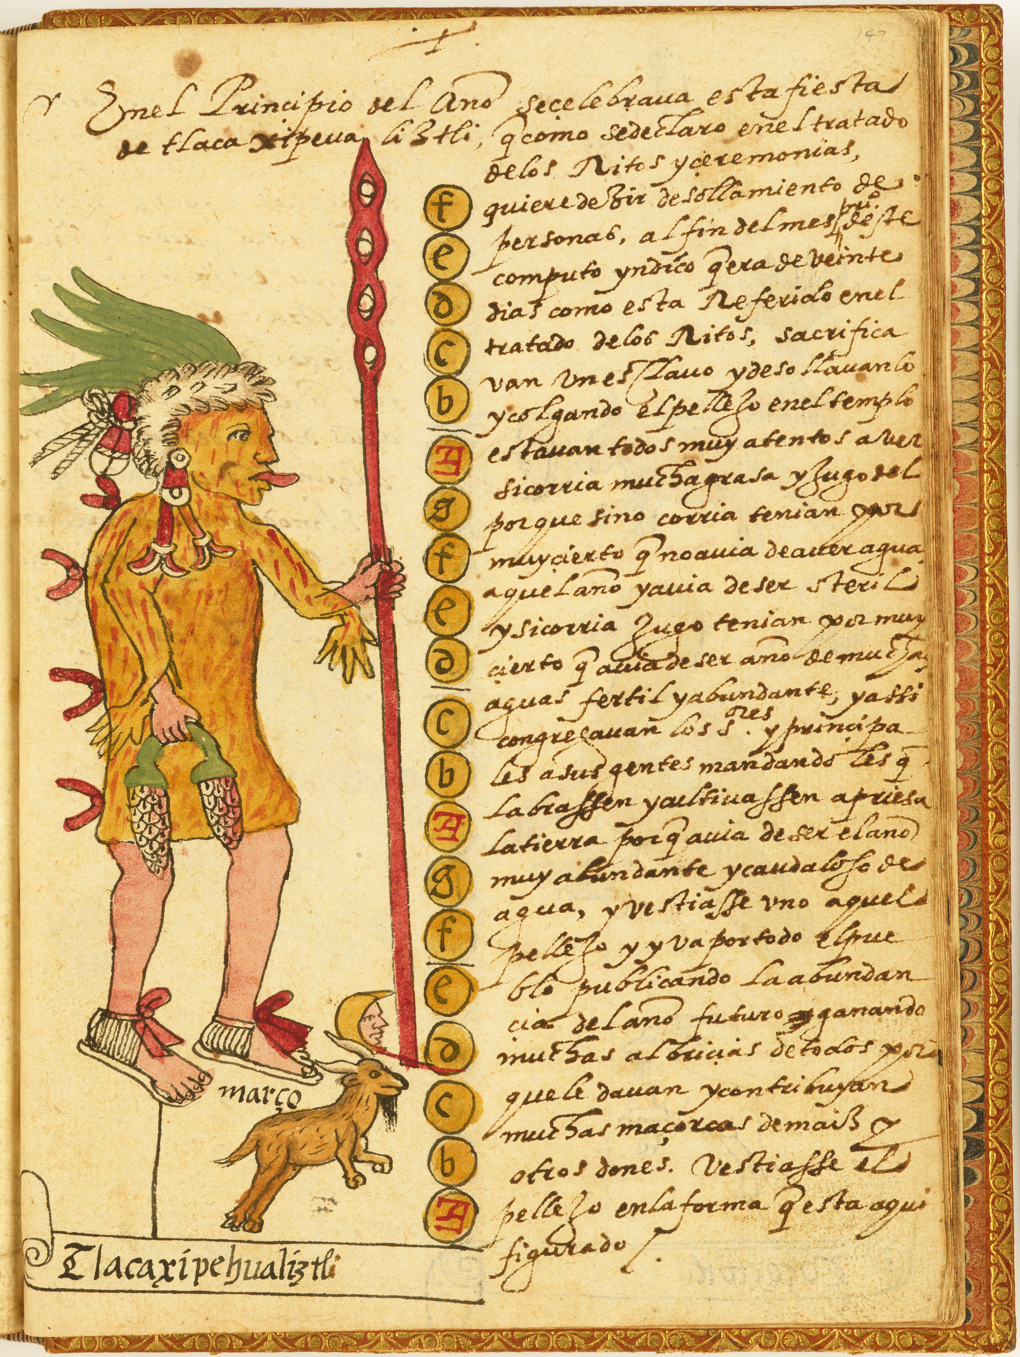 147
Enel Principio del Año secelebrava esta fiesta
de tlaca xipeva liztli, q̃ como sedeclaro enel tratado
delos Ritos yçeremonias,
quiere dezir desollamiento de
personas, al fin del mes pri.º deste
computo yndico q̃ era de veinte
dias como esta Referido enel
tratado delos Ritos, sacrifica
van vn esclavo ydesollavanlo
ycolgando el pellejo enel templo
estavan todos muy atentos aver
sicorria muchagrasa yJugo del
porque sino corria tenian por
muycierto q̃ noavia deaver agua
aquel año yavia de ser steril
ysicorria Jugo tenian por muy
cierto q̃ avia deser año de mucha
aguas fertil yabundante, yassi
congregavan los s.ores y principa
les asus gentes mandando les q̃
labrassen ycultivassen apriesa
latierra porq̃ avia de ser el año
muy abundante ycaudaloso de
agua, yvestiasse vno aquel
pellejo y yva portodo elpue
blo publicando laabundan
cia del año futuro yganando
muchas albricias detodos por
quele davan ycontribuyan
muchas maçorcas demaiz y
otros dones. Vestiasse el
pellejo enlaforma q̃ esta aqui
figurado
f
e
d
c
b
A
g
f
e
d
c
b
A
g
f
e
d
c
b
A
março
Tlacaxipehualiztli